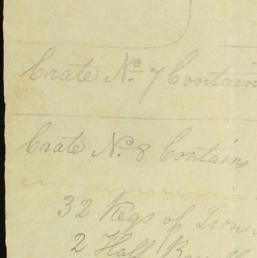 Crate No. 7 Contain
Crate No. 8 Contains
32 Kegs of Irons
2 Half Barrells